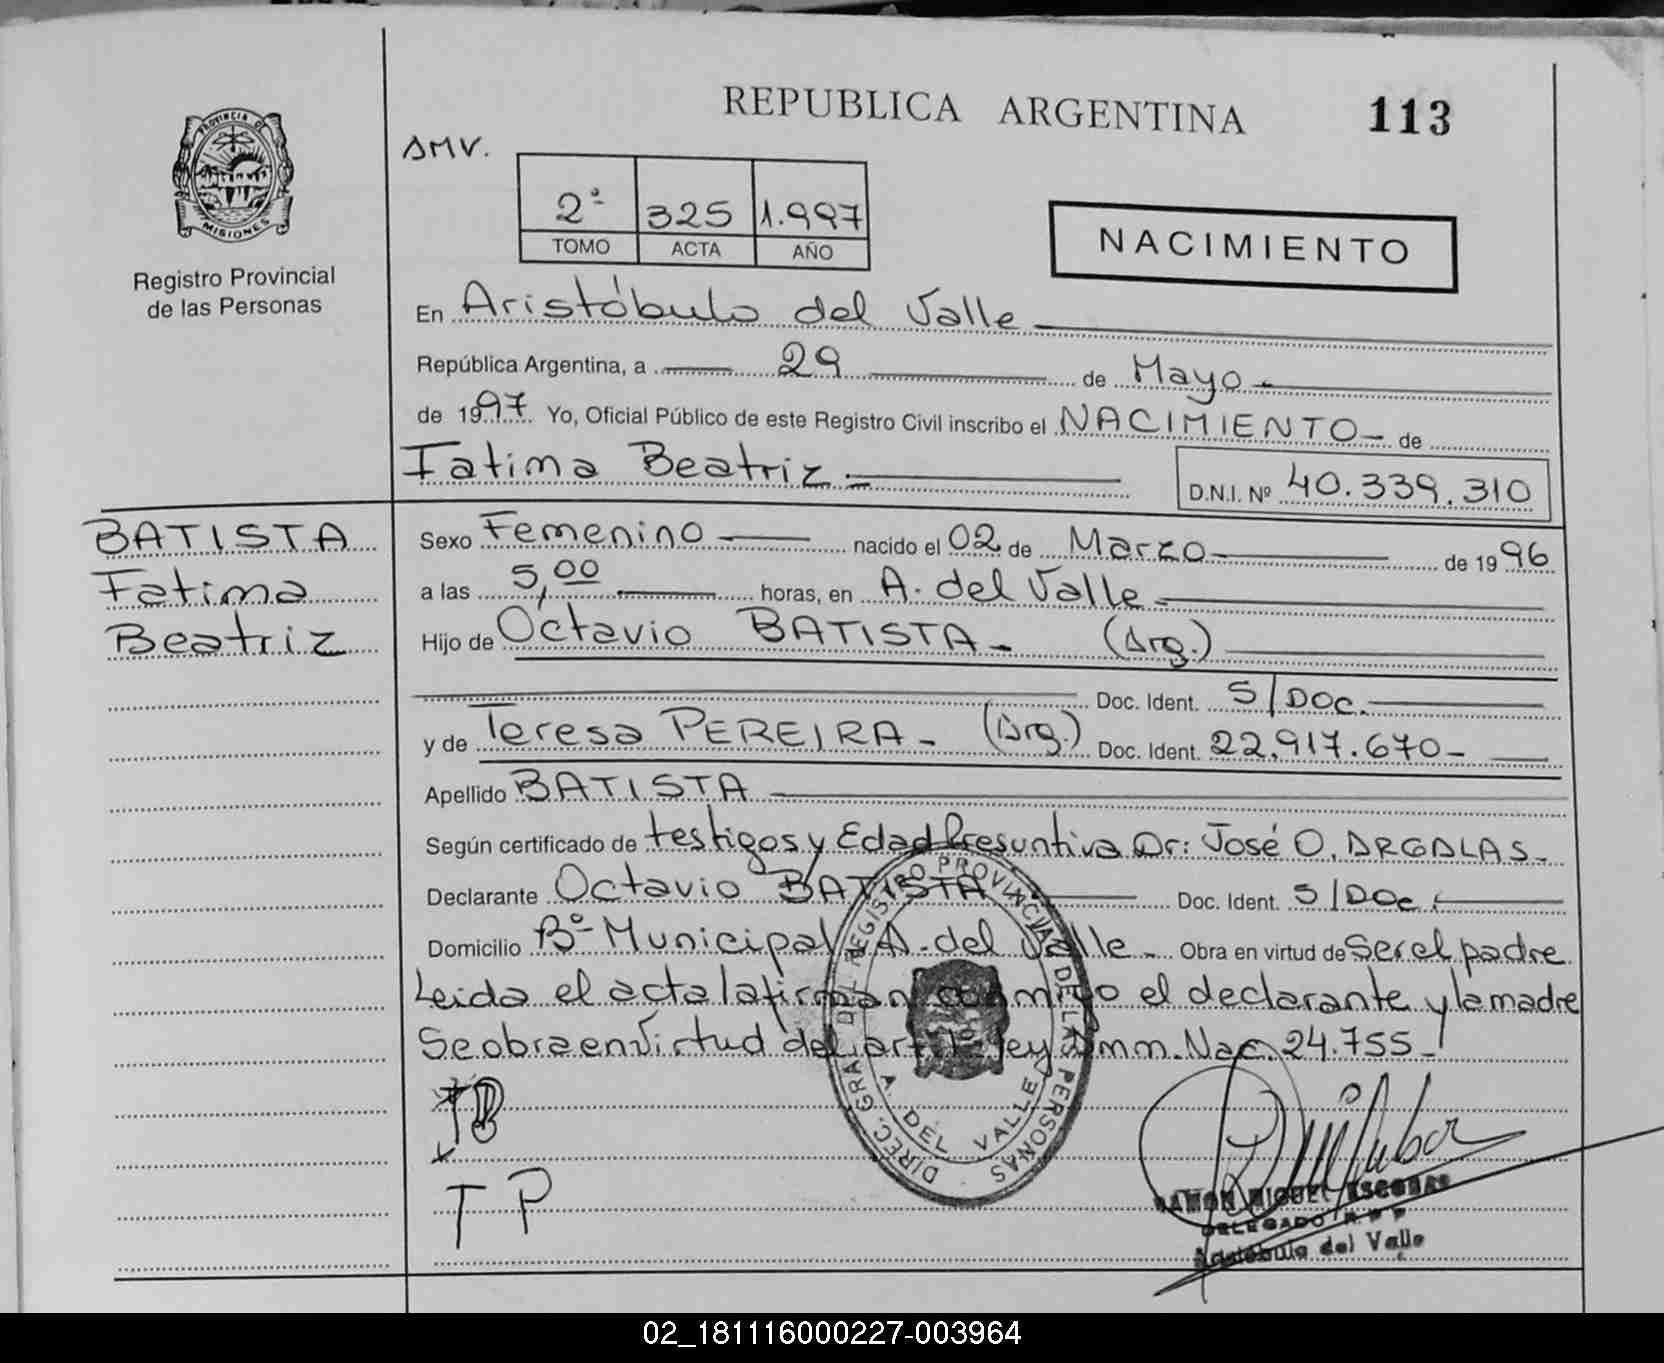 REPUBLICA ARGENTINA
113
PROVINCIA DE
MISIONES
Registro Provincial
de las Personas
SMV.
2º 325 1.997
TOMO ACTA AÑO
NACIMIENTO
En Aristóbulo del Valle
República Argentina, a 29 de Mayo
de 1997 Yo, Oficial Público de este Registro Civil inscribo el NACIMIENTO de
Fatima Beatriz
D.N.I. Nº 40.339.310
BATISTA
Fatima
Beatriz
Sexo Femenino nacido el 02 de Marzo de 1996
a las 5,00 horas, en A. del Valle
Hijo de Octavio BATISTA (Arg.)
Doc. Ident. S/Doc.
y de Teresa PEREIRA (Arg.) Doc. Ident. 22.917.670
Apellido BATISTA
Según certificado de testigos y Edad Presuntiva Dr: José O. ARGALAS
Declarante Octavio BATISTA Doc. Ident. S/Doc.
Domicilio Bº Municipal A. del Valle Obra en virtud de Ser el padre
Leida el acta la firman conmigo el declarante y la madre
Se obra en virtud del art 1º ley Amn. Nac. 24.755
DIREC. GRAL DEL REGISTRO PROVINCIAL DE LAS PERSONAS
A. DEL VALLE
T P
RAMON MIGUEL ESCOBAR
DELEGADO R.P.P
Aristóbulo del Valle
02_181116000227-003964